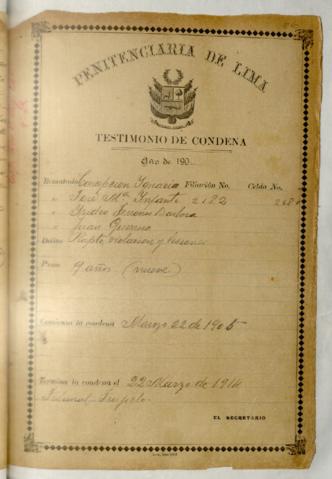 PENITENCIARIA DE LIMA
TESTIMONIO DE CONDENA
Año de 190
Rematado Concepcion Ignacio Filiación No. Celda No.
" José Ma. Infante 2182
"
" Juan Guerrero
Delito Rapto, violacion y
Pena 9 años (nueve)
Comienza la condena Marzo 22 de 1905
Termina la condena el 22 Marzo de 1914
Tribunal Trujillo
EL SECRETARIO